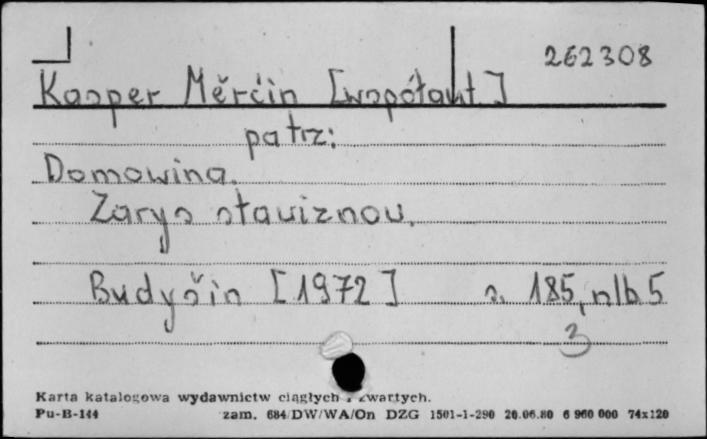 262308
Kasper Měrćin [współaut.]
patrz:
Domowina.
Zarys stawiznow.
Budyšin [1972] s. 185, nlb 5
3
Karta katalogowa wydawnictw ciągłych i zwartych.
Pu-B-144 zam. 684/DW/WA/On DZG 1501-1-290 20.06.80 6 960 000 74x120